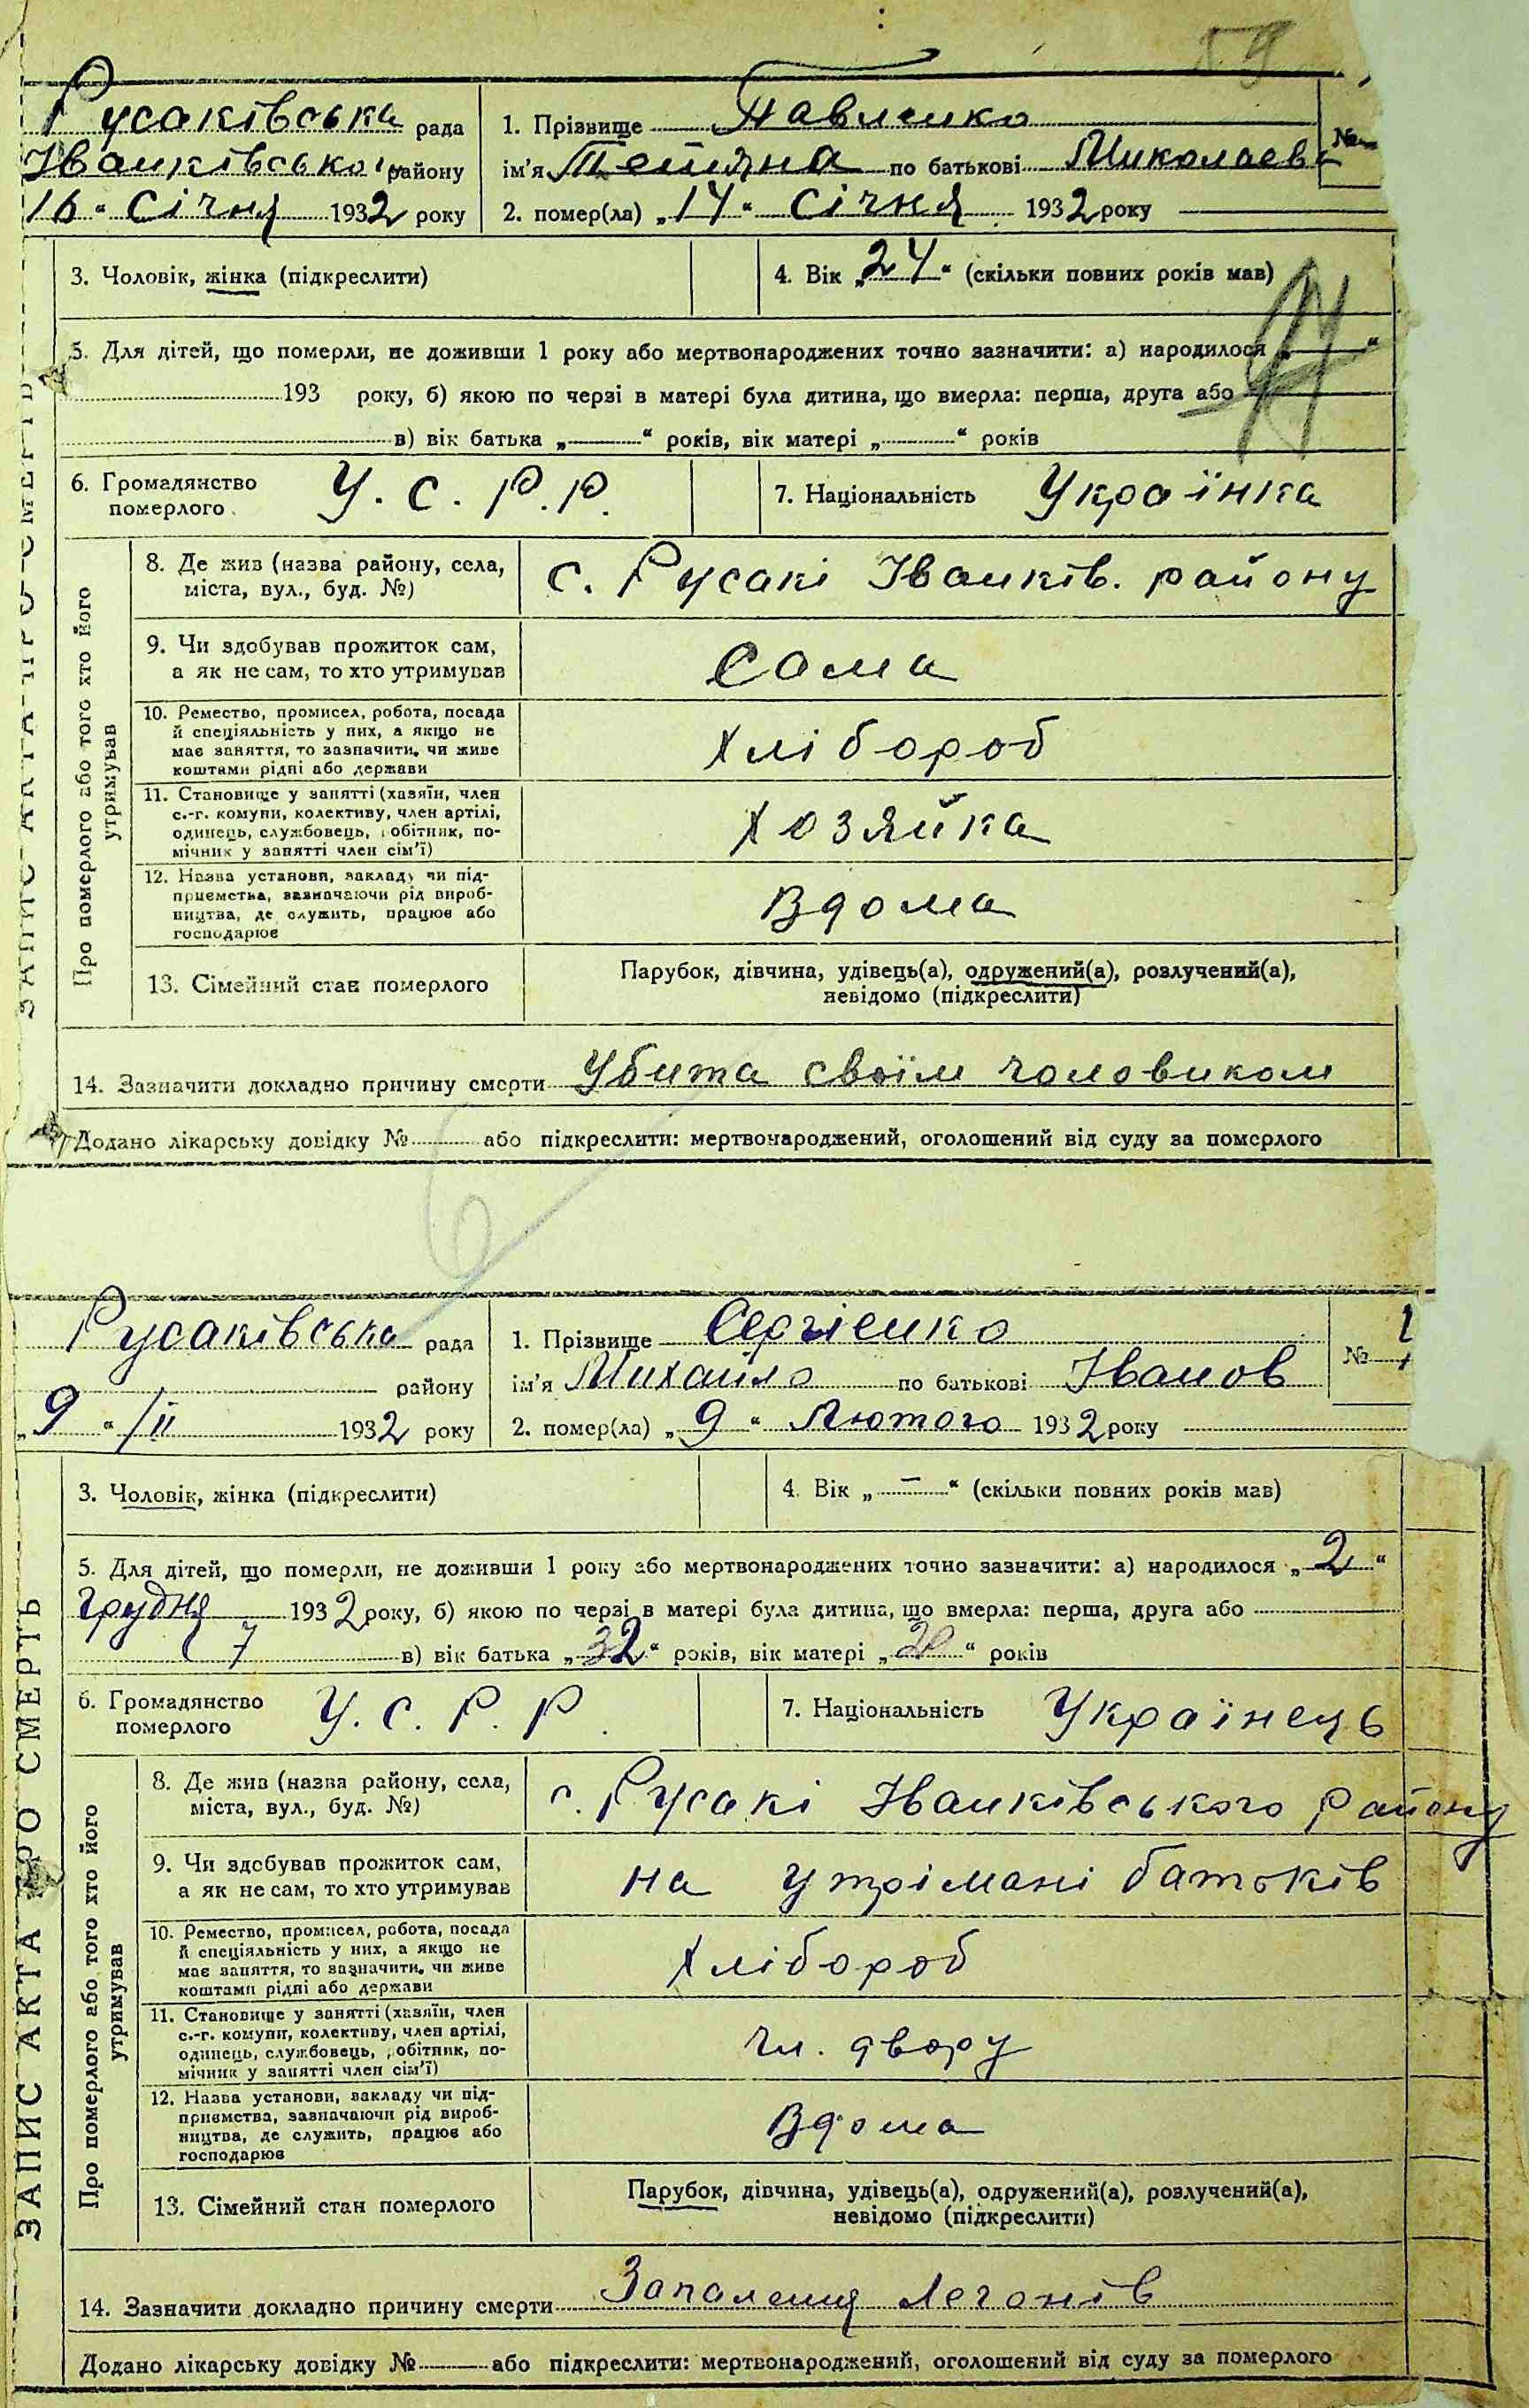 59
Русаківська рада
Іванківської району
16 " Січня 1932 року
1. Прізвище Павленко
ім'я Тетяна по батькові Миколаєва
№
2. помер(ла) „14" Січня 1932 року
3. Чоловік, жінка (підкреслити)
4. Вік „24" (скільки повних років мав)
5. Для дітей, що померли, не доживши 1 року або мертвонароджених точно зазначити: а) народилося „—"
193 року, б) якою по черзі в матері була дитина, що вмерла: перша, друга або
в) вік батька „—" років, вік матері „—" років
6. Громадянство померлого У.С.Р.Р.
7. Національність Українка
ЗАПИС АКТА ПРО СМЕРТЬ
Про померлого або того хто його утримував
8. Де жив (назва району, села,
міста, вул., буд. №)
с. Русакі Іванків. району
9. Чи здобував прожиток сам,
а як не сам, то хто утримував
Сама
10. Ремество, промисел, робота, посада
й спеціяльність у них, а якщо не
має заняття, то зазначити, чи живе
коштами рідні або держави
Хлібороб
11. Становище у занятті (хазяїн, член
с.-г. комуни, колективу, член артілі,
одинець, службовець, робітник, по-
мічник у занятті член сім'ї)
Хозяйка
12. Назва установи, закладу чи під-
приємства, зазначаючи рід вироб-
ництва, де служить, працює або
господарює
Вдома
13. Сімейний стан померлого
Парубок, дівчина, удівець(а), одружений(а), розлучений(а),
невідомо (підкреслити)
14. Зазначити докладно причину смерти Убита своїм чоловиком
Додано лікарську довідку № або підкреслити: мертвонароджений, оголошений від суду за померлого
Русаківська рада
району
„9 " /II 1932 року
1. Прізвище Сергієнко
ім'я Михайло по батькові Іванов
№
2. помер(ла) „9" Лютого 1932 року
3. Чоловік, жінка (підкреслити)
4. Вік „—" (скільки повних років мав)
5. Для дітей, що померли, не доживши 1 року або мертвонароджених точно зазначити: а) народилося „2"
грудня 1932 року, б) якою по черзі в матері була дитина, що вмерла: перша, друга або
7 в) вік батька „32" років, вік матері „" років
6. Громадянство померлого У.С.Р.Р.
7. Національність Українець
ЗАПИС АКТА ПРО СМЕРТЬ
Про померлого або того хто його утримував
8. Де жив (назва району, села,
міста, вул., буд. №)
с. Русакі Іванківського району
9. Чи здобував прожиток сам,
а як не сам, то хто утримував
на утрімані батьків
10. Ремество, промисел, робота, посада
й спеціяльність у них, а якщо не
має заняття, то зазначити, чи живе
коштами рідні або держави
Хлібороб
11. Становище у занятті (хазяїн, член
с.-г. комуни, колективу, член артілі,
одинець, службовець, робітник, по-
мічник у занятті член сім'ї)
чл. двору
12. Назва установи, закладу чи під-
приємства, зазначаючи рід вироб-
ництва, де служить, працює або
господарює
Вдома
13. Сімейний стан померлого
Парубок, дівчина, удівець(а), одружений(а), розлучений(а),
невідомо (підкреслити)
14. Зазначити докладно причину смерти Запаленя Легонів
Додано лікарську довідку № або підкреслити: мертвонароджений, оголошений від суду за померлого